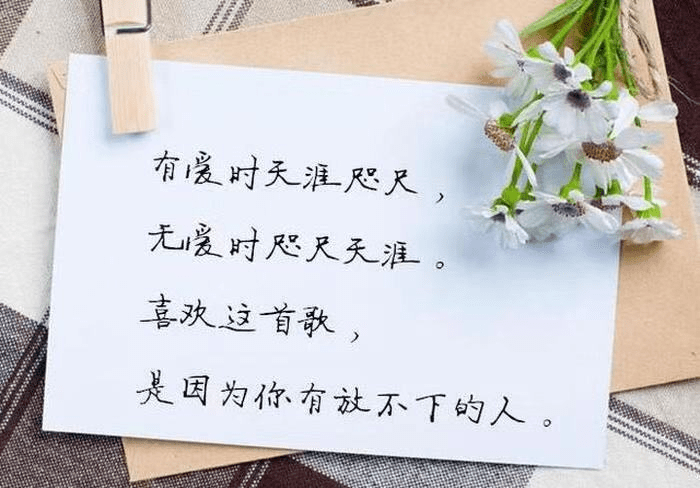 有爱时天涯咫尺，
无爱时咫尺天涯。
喜欢这首歌，
是因为你有放不下的人。